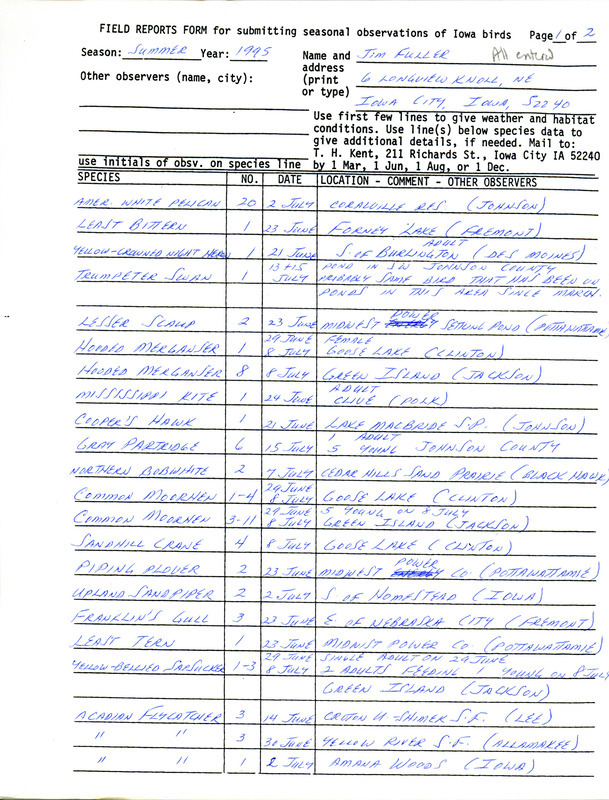 FIELD REPORTS FORM for submitting seasonal observations of Iowa birds Page 1 of 2
Season: SUMMER Year: 1995 Name and JIM FULLER All entered
address
Other observers (name, city): (print 6 LONGVIEW KNOLL, NE
or type)
IOWA CITY, IOWA, 52240
Use first few lines to give weather and habitat
conditions. Use line(s) below species data to
give additional details, if needed. Mail to:
T. H. Kent, 211 Richards St., Iowa City IA 52240
use initials of obsv. on species line by 1 Mar, 1 Jun, 1 Aug, or 1 Dec.
SPECIES NO. DATE LOCATION - COMMENT - OTHER OBSERVERS
AMER WHITE PELICAN 20 2 JULY CORALVILLE RES (JOHNSON)
LEAST BITTERN 1 23 JUNE FORNEY LAKE (FREMONT)
ADULT
YELLOW-CROWNED NIGHT HERON 1 21 JUNE S OF BURLINGTON (DES MOINES)
13 + 15 POND IN SW JOHNSON COUNTY
TRUMPETER SWAN 1 JULY PROBABLY SAME BIRD THAT HAS BEEN ON
PONDS IN THIS AREA SINCE MARCH.
POWER
LESSER SCAUP 2 23 JUNE MIDWEST ENERGY SETTLING POND (POTTAWATTAMIE)
29 JUNE FEMALE
HOODED MERGANSER 1 8 JULY GOOSE LAKE (CLINTON)
HOODED MERGANSER 8 8 JULY GREEN ISLAND (JACKSON)
ADULT
MISSISSIPPI KITE 1 24 JUNE CLIVE (POLK)
COOPER'S HAWK 1 21 JUNE LAKE MACBRIDE S.P. (JOHNSON)
1 ADULT
GRAY PARTRIDGE 6 15 JULY 5 YOUNG JOHNSON COUNTY
NORTHERN BOBWHITE 2 7 JULY CEDAR HILLS SAND PRAIRIE (BLACK HAWK)
29 JUNE
COMMON MOORHEN 1-4 8 JULY GOOSE LAKE (CLINTON)
29 JUNE 5 YOUNG ON 8 JULY
COMMON MOORHEN 3-11 8 JULY GREEN ISLAND (JACKSON)
SANDHILL CRANE 4 8 JULY GOOSE LAKE (CLINTON)
POWER
PIPING PLOVER 2 23 JUNE MIDWEST ENERGY CO. (POTTAWATTAMIE)
UPLAND SANDPIPER 2 2 JULY S OF HOMESTEAD (IOWA)
FRANKLIN'S GULL 3 23 JUNE E OF NEBRASKA CITY (FREMONT)
LEAST TERN 1 23 JUNE MIDWEST POWER CO (POTTAWATTAMIE)
29 JUNE SINGLE ADULT ON 29 JUNE
YELLOW-BELLIED SAPSUCKER 1-3 8 JULY 2 ADULTS FEEDING YOUNG ON 8 JULY
GREEN ISLAND (JACKSON)
ACADIAN FLYCATCHER 3 14 JUNE CROTON U - SHIMEK S.F. (LEE)
" " 3 30 JUNE YELLOW RIVER S.F. (ALLAMAKEE)
" " 1 2 JULY AMANA WOODS (IOWA)